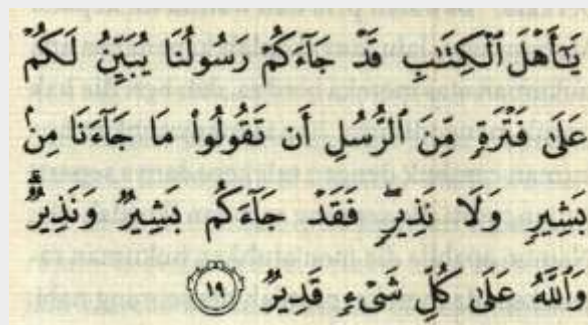 يَٰٓأَهْلَ ٱلْكِتَٰبِ قَدْ جَآءَكُمْ رَسُولُنَا يُبَيِّنُ لَكُمْ
عَلَىٰ فَتْرَةٍ مِّنَ ٱلرُّسُلِ أَن تَقُولُوا۟ مَا جَآءَنَا مِنۢ
بَشِيرٍ وَلَا نَذِيرٍۖ فَقَدْ جَآءَكُم بَشِيرٌ وَنَذِيرٌۗ
وَٱللَّهُ عَلَىٰ كُلِّ شَىْءٍ قَدِيرٌ ١٩